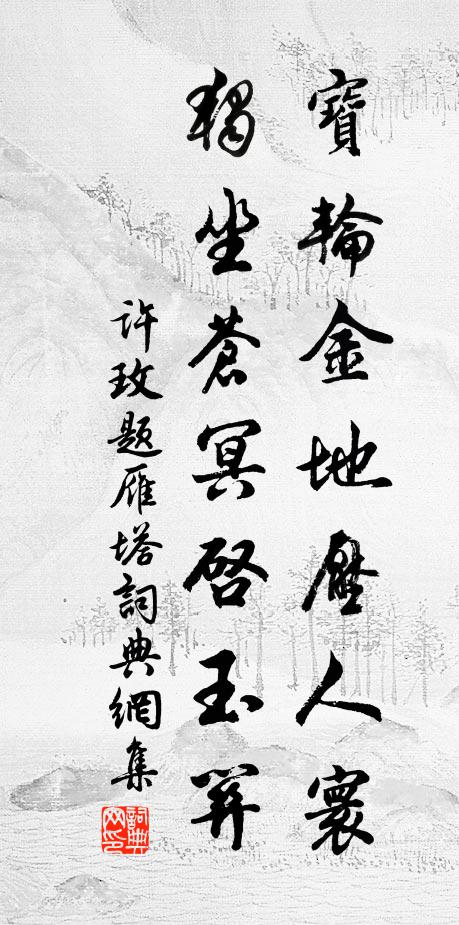 寶輪金地壓人寰
獨坐蒼冥啓玉關
许玫题雁塔詞典網集
詞典网印